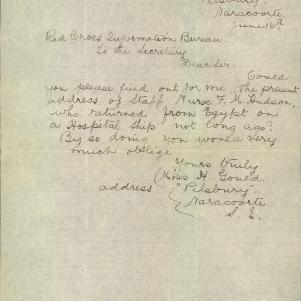 Pilsbury.
Naracoorte
June 16th
Red Cross Information Bureau
To the Secretary
Dear Sir.
Could
you please find out for me the present
address of Staff Nurse F. M. Hudson,
who returned from Egypt on
a Hospital Ship not long ago?
By so doing you would very
much oblige
Yours truly
Miss H. Gould
address "Pilsbury".
Naracoorte.
S. E.